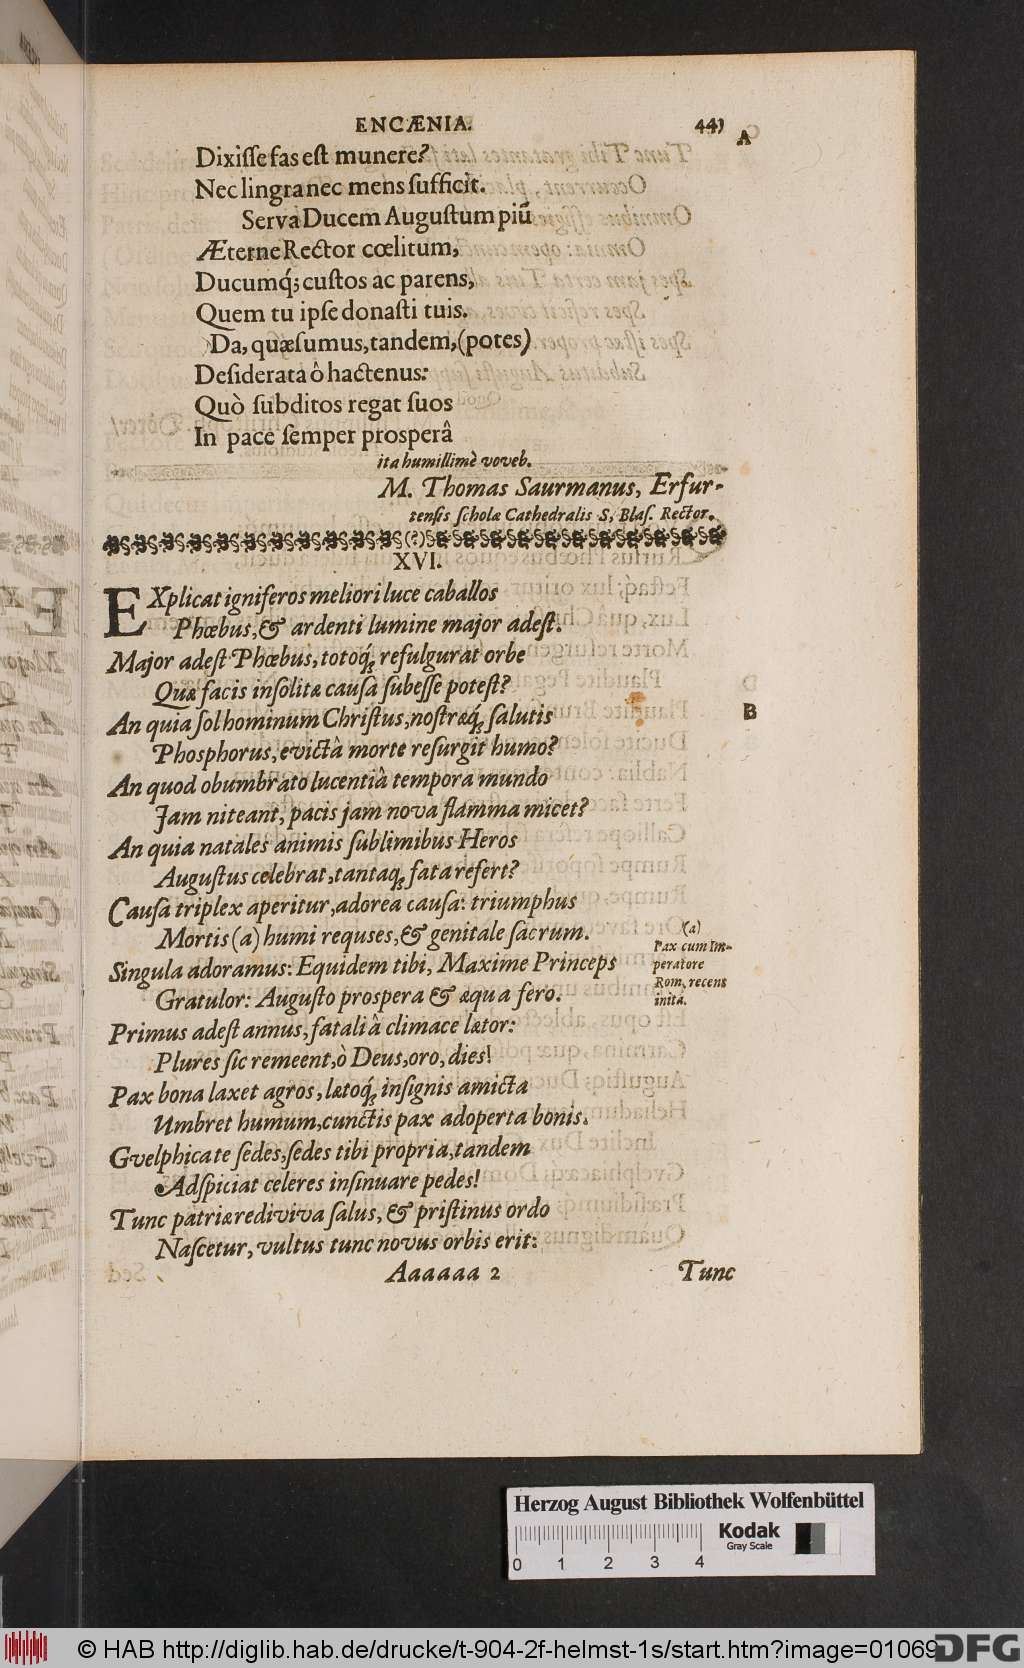 ENCÆNIA. 441
A
Dixiſſe fas eſt munere?
Nec lingra nec mens ſufficit.
Serva Ducem Auguſtum piũ
Æterne Rector cœlitum,
Ducumq́; cuſtos ac parens,
Quem tu ipſe donaſti tuis.
Da, quæſumus, tandem, (potes)
Deſiderata ô hactenus:
Quò ſubditos regat ſuos
In pace ſemper proſperâ
ita humillimè voveb.
M. Thomas Saurmanus, Erfur-
tenſis ſcholæ Cathedralis S, Blaſ. Rector.
(?)
XVI.
EXplicat igniferos meliori luce caballos
Phœbus, & ardenti lumine major adeſt.
Major adeſt Phœbus, totoq́; refulgurat orbe
Quæ facis inſolitæ cauſa ſubeſſe poteſt?
An quia ſol hominum Chriſtus, noſtræq́; ſalutis
B
Phosphorus, evictâ morte reſurgit humo?
An quod obumbrato lucentiâ tempora mundo
Jam niteant, pacis jam nova flamma micet?
An quia natales animis ſublimibus Heros
Auguſtus celebrat, tantaq; fata refert?
Cauſa triplex aperitur, adorea cauſa: triumphus
Mortis (a) humi requſes, & genitale ſacrum.
(a)
Pax cum Im-
peratore
Rom, recens
inita.
Singula adoramus: Equidem tibi, Maxime Princeps
Gratulor: Auguſto proſpera & æqua fero.
Primus adeſt annus, fatali â climace lætor:
Plures ſic remeent, ò Deus, oro, dies!
Pax bona laxet agros, lætoq́; inſignis amicta
Umbret humum, cunctis pax adoperta bonis.
Gvelphica te ſedes, ſedes tibi propria, tandem
Adſpiciat celeres inſinuare pedes!
Tunc patriæ rediviva ſalus, & priſtinus ordo
Naſcetur, vultus tunc novus orbis erit:
Aaaaaa 2 Tunc
Herzog August Bibliothek Wolfenbüttel
0 1 2 3 4
Kodak
Gray Scale
© HAB http://diglib.hab.de/drucke/t-904-2f-helmst-1s/start.htm?image=01069
DFG